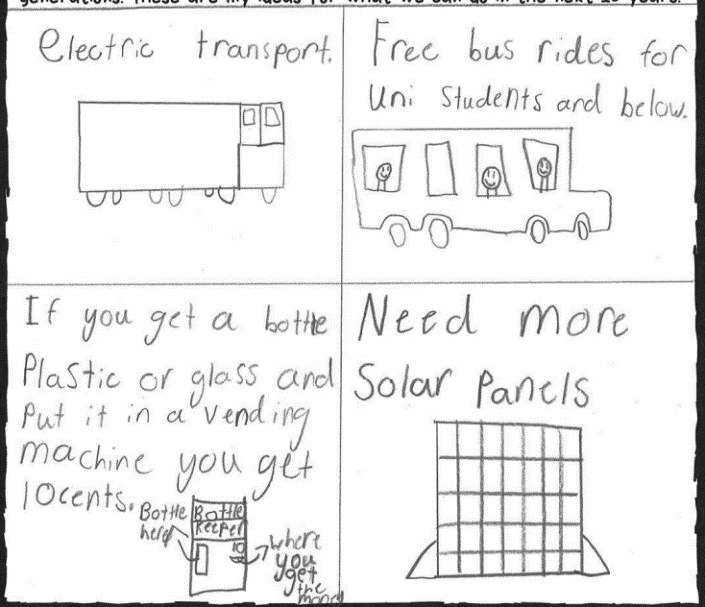 generations. These are my ideas for what we can do in the next 10 years.
electric transport.
Free bus rides for
Uni Students and below.
If you get a bottle
Plastic or glass and
Put it in a vending
machine you get
10cents.
Bottle
here
Bottle
Keeper
10
where
you
get
the
money
Need more
Solar Panels